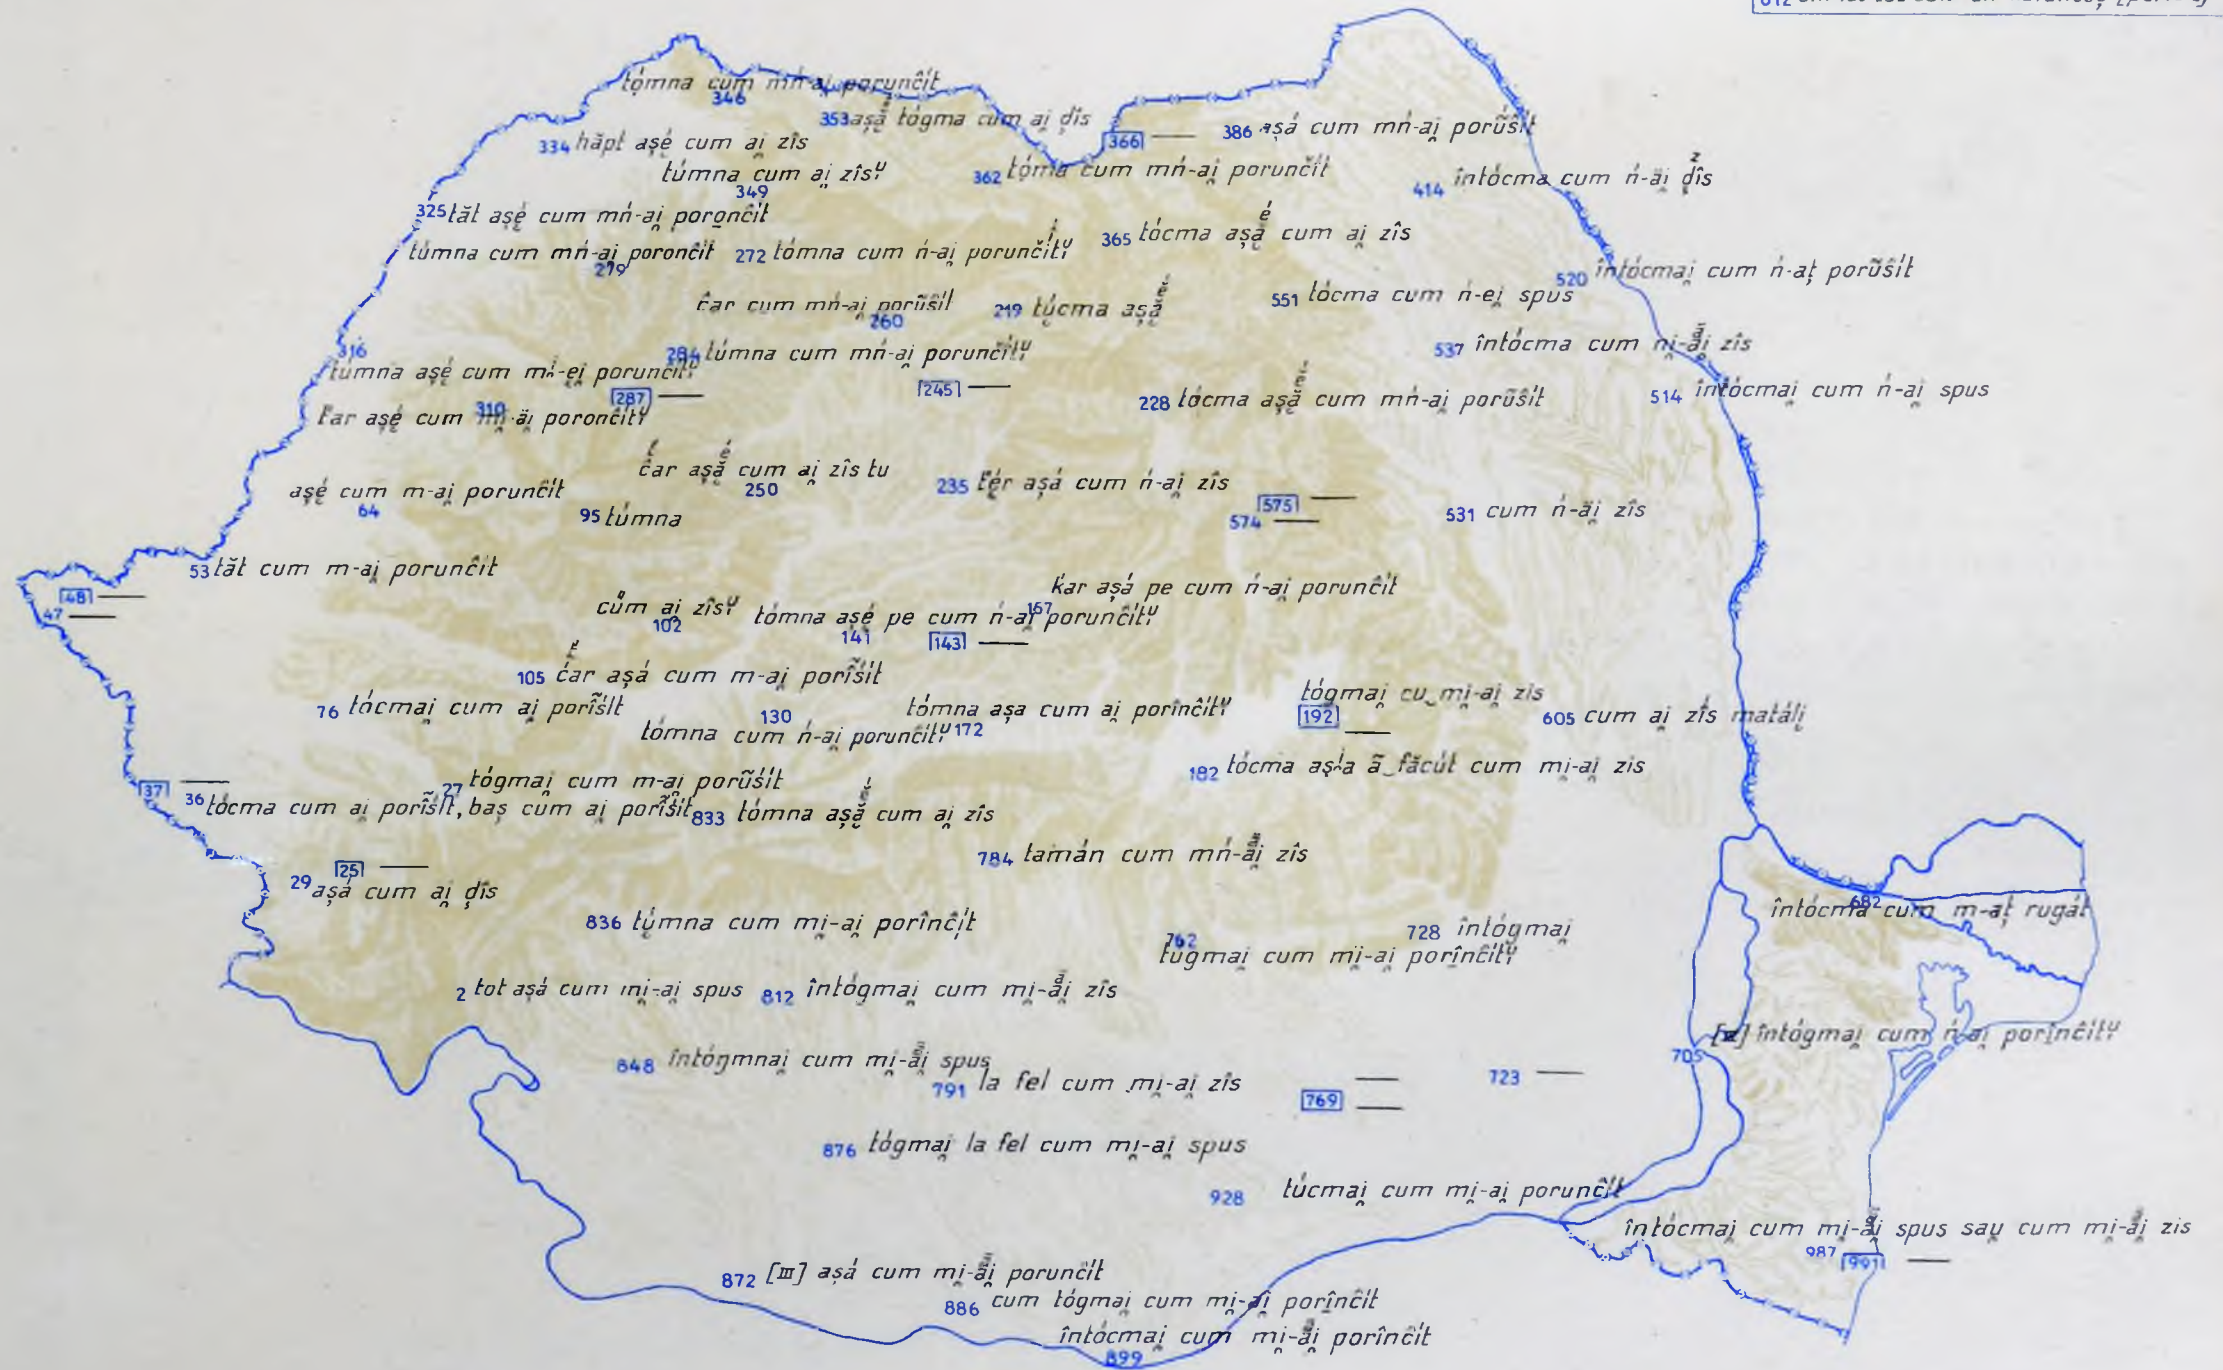 tómna cum mń-ai̯ porunĉít
346
353 așắ tógma cum ai̯ d̦îs
334 hăpt așé cum ai̯ zîs
366 —
386 așá cum mń-ai̯ porũŝít
túmna cum ai̯ zîsᵘ
349
362 tóma cum mń-ai̯ porunĉít
414 întócma cum ń-ăi̯ d̦îs
325 tăt așé cum mń-ai̯ poronĉít
túmna cum mń-ai̯ poronĉít
279
272 tómna cum ń-ai̯ porunĉítᵘ
365 tócma așắ cum ai̯ zîs
520 întócmai̯ cum ń-aț porũŝít
ĉar cum mń-ai̯ porũŝít
260
219 túcma așắ
551 tócma cum ń-ei̯ spus
316
túmna așé cum mń-ei̯ porunĉítᵘ
284 túmna cum mń-ai̯ porunĉítᵘ
537 întócma cum ni̯-ăi̯ zîs
287 —
245 —
228 tócma așắ cum mń-ai̯ porũŝít
514 întócmai̯ cum ń-ai̯ spus
310
așé cum ăi̯ poronĉítᵘ
ĉar așắ cum ai̯ zîs tu
250
235 așá cum ń-ai̯ zîs
așé cum m-ai̯ porunĉít
64
95 túmna
575 —
574 —
531 cum ń-ăi̯ zîs
53 tăt cum m-ai̯ porunĉít
48 —
47 —
ḱar așá pe cum ń-ai̯ porunĉít
157
cum ai̯ zîsᵘ
102
tómna așé pe cum ń-ai̯ porunĉítᵘ
141
143 —
105 așá cum m-ai̯ porĩŝít
76 tócmai̯ cum ai̯ porĩŝít
130
tómna cum ń-ai̯ porunĉítᵘ
tómna așa cum ai̯ porînĉítᵘ
172
tógmai̯ cu‿mi̯-ai̯ zîs
192
—
605 cum ai̯ zîs matáli̯
182 tócma ã‿făcút cum mi̯-ai̯ zis
37 —
27 tógmai̯ cum m-ai̯ porũŝít
36 tócma cum ai̯ porĩŝít, baș cum ai̯ porĩŝít
833 tómna așắ cum ai̯ zîs
784 tamán cum mń-ăi̯ zîs
25 —
29 așá cum ai̯ d̦îs
836 túmna cum mi̯-ai̯ porînĉít
762
tugmai̯ cum mi̯-ai̯ porînĉítᵘ
728 întógmai̯
682
întócma cum m-aț rugát
2 tot așá cum mi̯-ai̯ spus
812 întógmai̯ cum mi̯-ăi̯ zîs
întógmai̯ cum ń-ai̯ porînĉítᵘ
705
848 întógmnai̯ cum mi̯-ăi̯ spus
791 la fel cum mi̯-ai̯ zîs
—
769 —
723 —
876 tógmai̯ la fel cum mi̯-ai̯ spus
928 túcmai̯ cum mi̯-ai̯ porunĉít
întócmai̯ cum mi̯-ăi̯ spus sau̯ cum mi̯-ăi̯ zis
987
991 —
872 [III] așá cum mi̯-ăi̯ porunĉít
886 cum tógmai̯ cum mi̯-ai̯ porînĉít
întócmai̯ cum mi̯-ăi̯ porînĉít
899